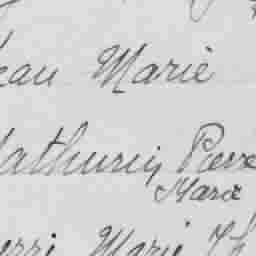 ean Marie
athurin Pierre
Marie
erre Marie Th